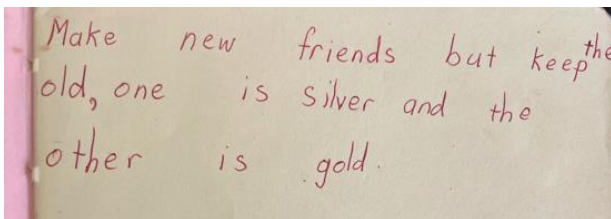 Make new friends but keep the
old, one is silver and the
other is gold.